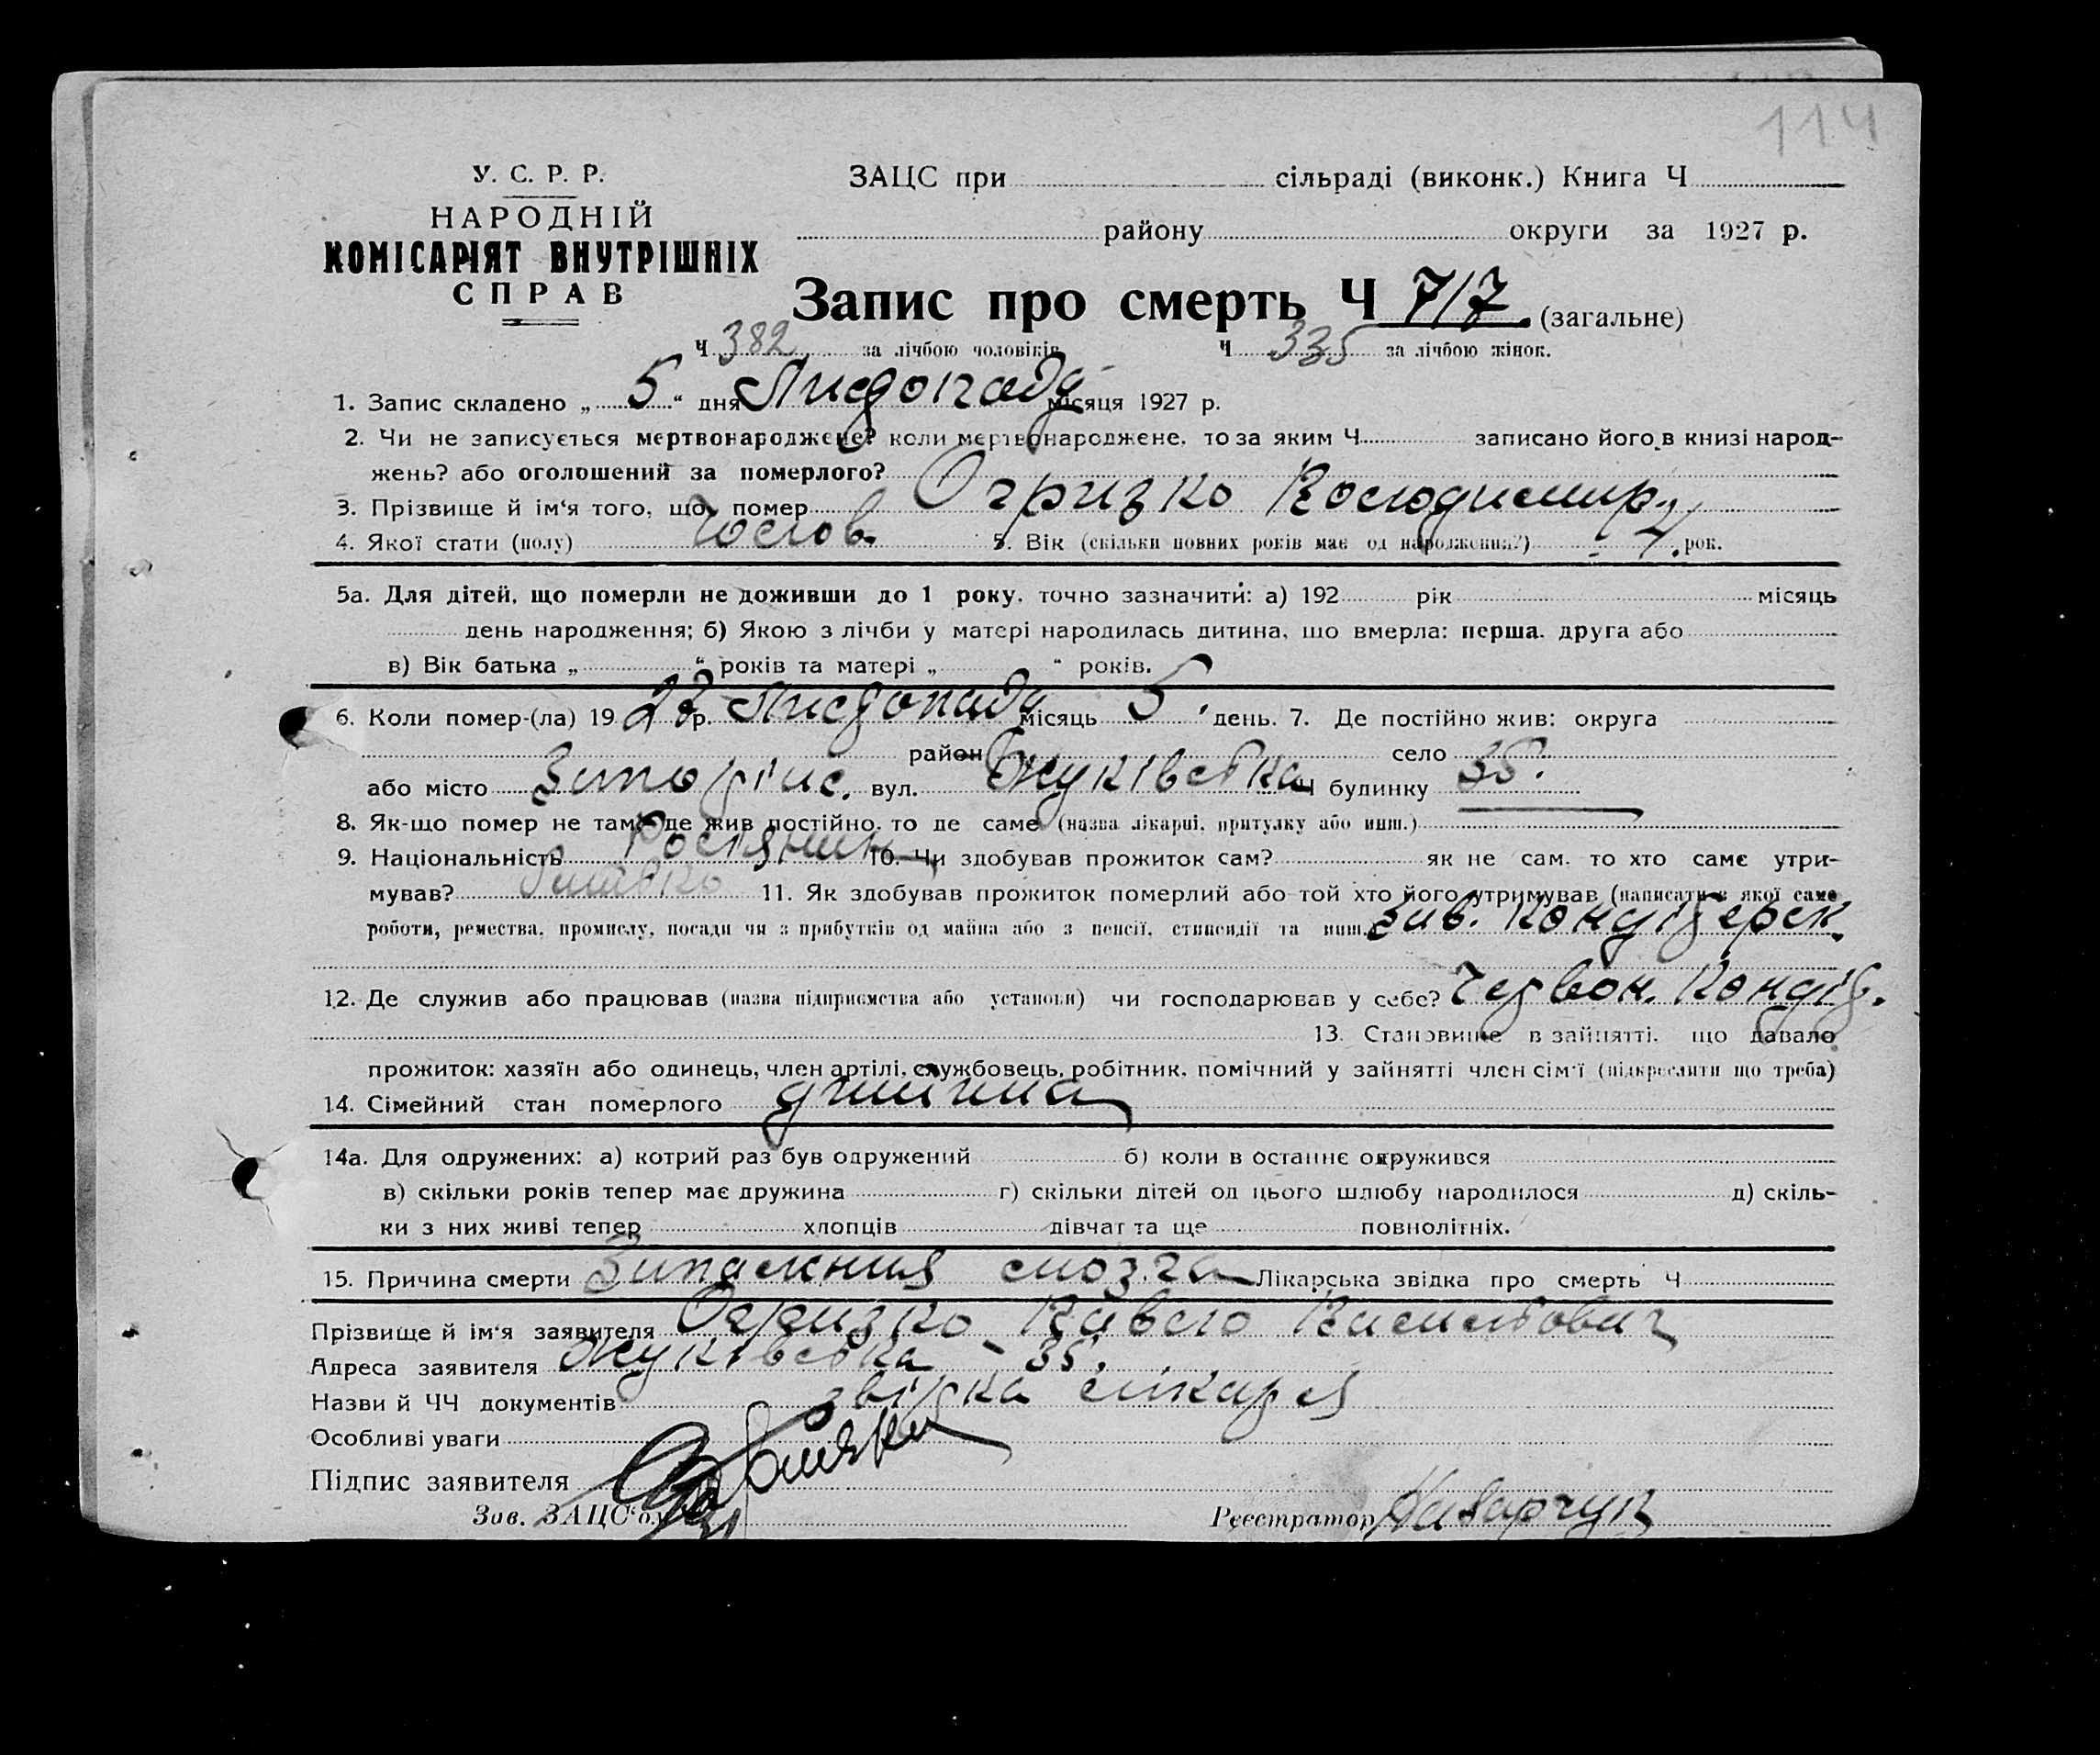 114
У. С. Р. Р.
НАРОДНІЙ
КОМІСАРІЯТ ВНУТРІШНІХ
СПРАВ
ЗАЦС при сільраді (виконк.) Книга Ч
району округи за 1927 р.
Запис про смерть Ч 717. (загальне)
Ч 382 за лічбою чоловіків Ч 335 за лічбою жінок.
1. Запис складено „ 5 “ дня Листопада місяця 1927 р.
2. Чи не записується мертвонароджене? коли мертвонароджене, то за яким Ч записано його в книзі народ-
жень? або оголошений за померлого?
3. Прізвище й ім'я того, що помер Огризко Володимир
4. Якої стати (полу) Чолов. 5. Вік (скільки повних років має од народження?) 4 рок.
5а. Для дітей, що померли не доживши до 1 року, точно зазначити: а) 192 рік місяць
день народження; б) Якою з лічби у матері народилась дитина, що вмерла: перша, друга або
в) Вік батька „ “ років та матері „ “ років.
6. Коли помер-(ла) 19 27 р. Листопада місяць 5 день. 7. Де постійно жив: округа
район село
або місто вул. Жуківська Ч будинку 35.
8. Як-що помер не там, де жив постійно, то де саме (назва лікарні, притулку або инш.)
9. Національність Росіянин 10. Чи здобував прожиток сам? як не сам, то хто саме утри-
мував? Батько 11. Як здобував прожиток померлий або той хто його утримував (написати з якої саме
роботи, ремества, промислу, посади чи з прибутків од майна або з пенсії, стипендії та инш. Зав. Кондітерск.
12. Де служив або працював (назва підприємства або установи) чи господарював у себе? Червон. Кондіт.
13. Становище в зайнятті, що давало
прожиток: хазяїн або одинець, член артілі, службовець, робітник, помічний у зайнятті член сім'ї (підкреслити що треба)
14. Сімейний стан померлого дитина
14а. Для одружених: а) котрий раз був одружений б) коли в останнє одружився
в) скільки років тепер має дружина г) скільки дітей од цього шлюбу народилося д) скіль-
ки з них живі тепер хлопців дівчат та ще повнолітніх.
15. Причина смерти Запалення мозга Лікарська звідка про смерть Ч
Прізвище й ім'я заявителя Огризко Павло
Адреса заявителя Жуківська - 35.
Назви й ЧЧ документів звідка лікаря
Особливі уваги
Підпис заявителя
Зав. ЗАЦС'ом Реєстратор